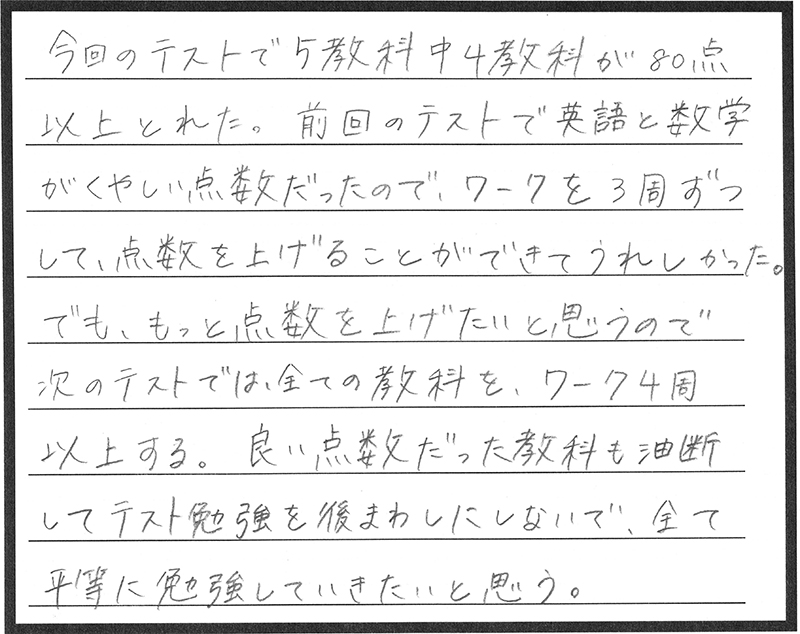 今回のテストで5教科中4教科が80点
以上とれた。前回のテストで英語と数学
がくやしい点数だったので、ワークを3周ずつ
して、点数を上げることができてうれしかった。
でも、もっと点数を上げたいと思うので
次のテストでは、全ての教科を、ワーク4周
以上する。良い点数だった教科も油断
してテスト勉強を後まわしにしないで、全て
平等に勉強していきたいと思う。